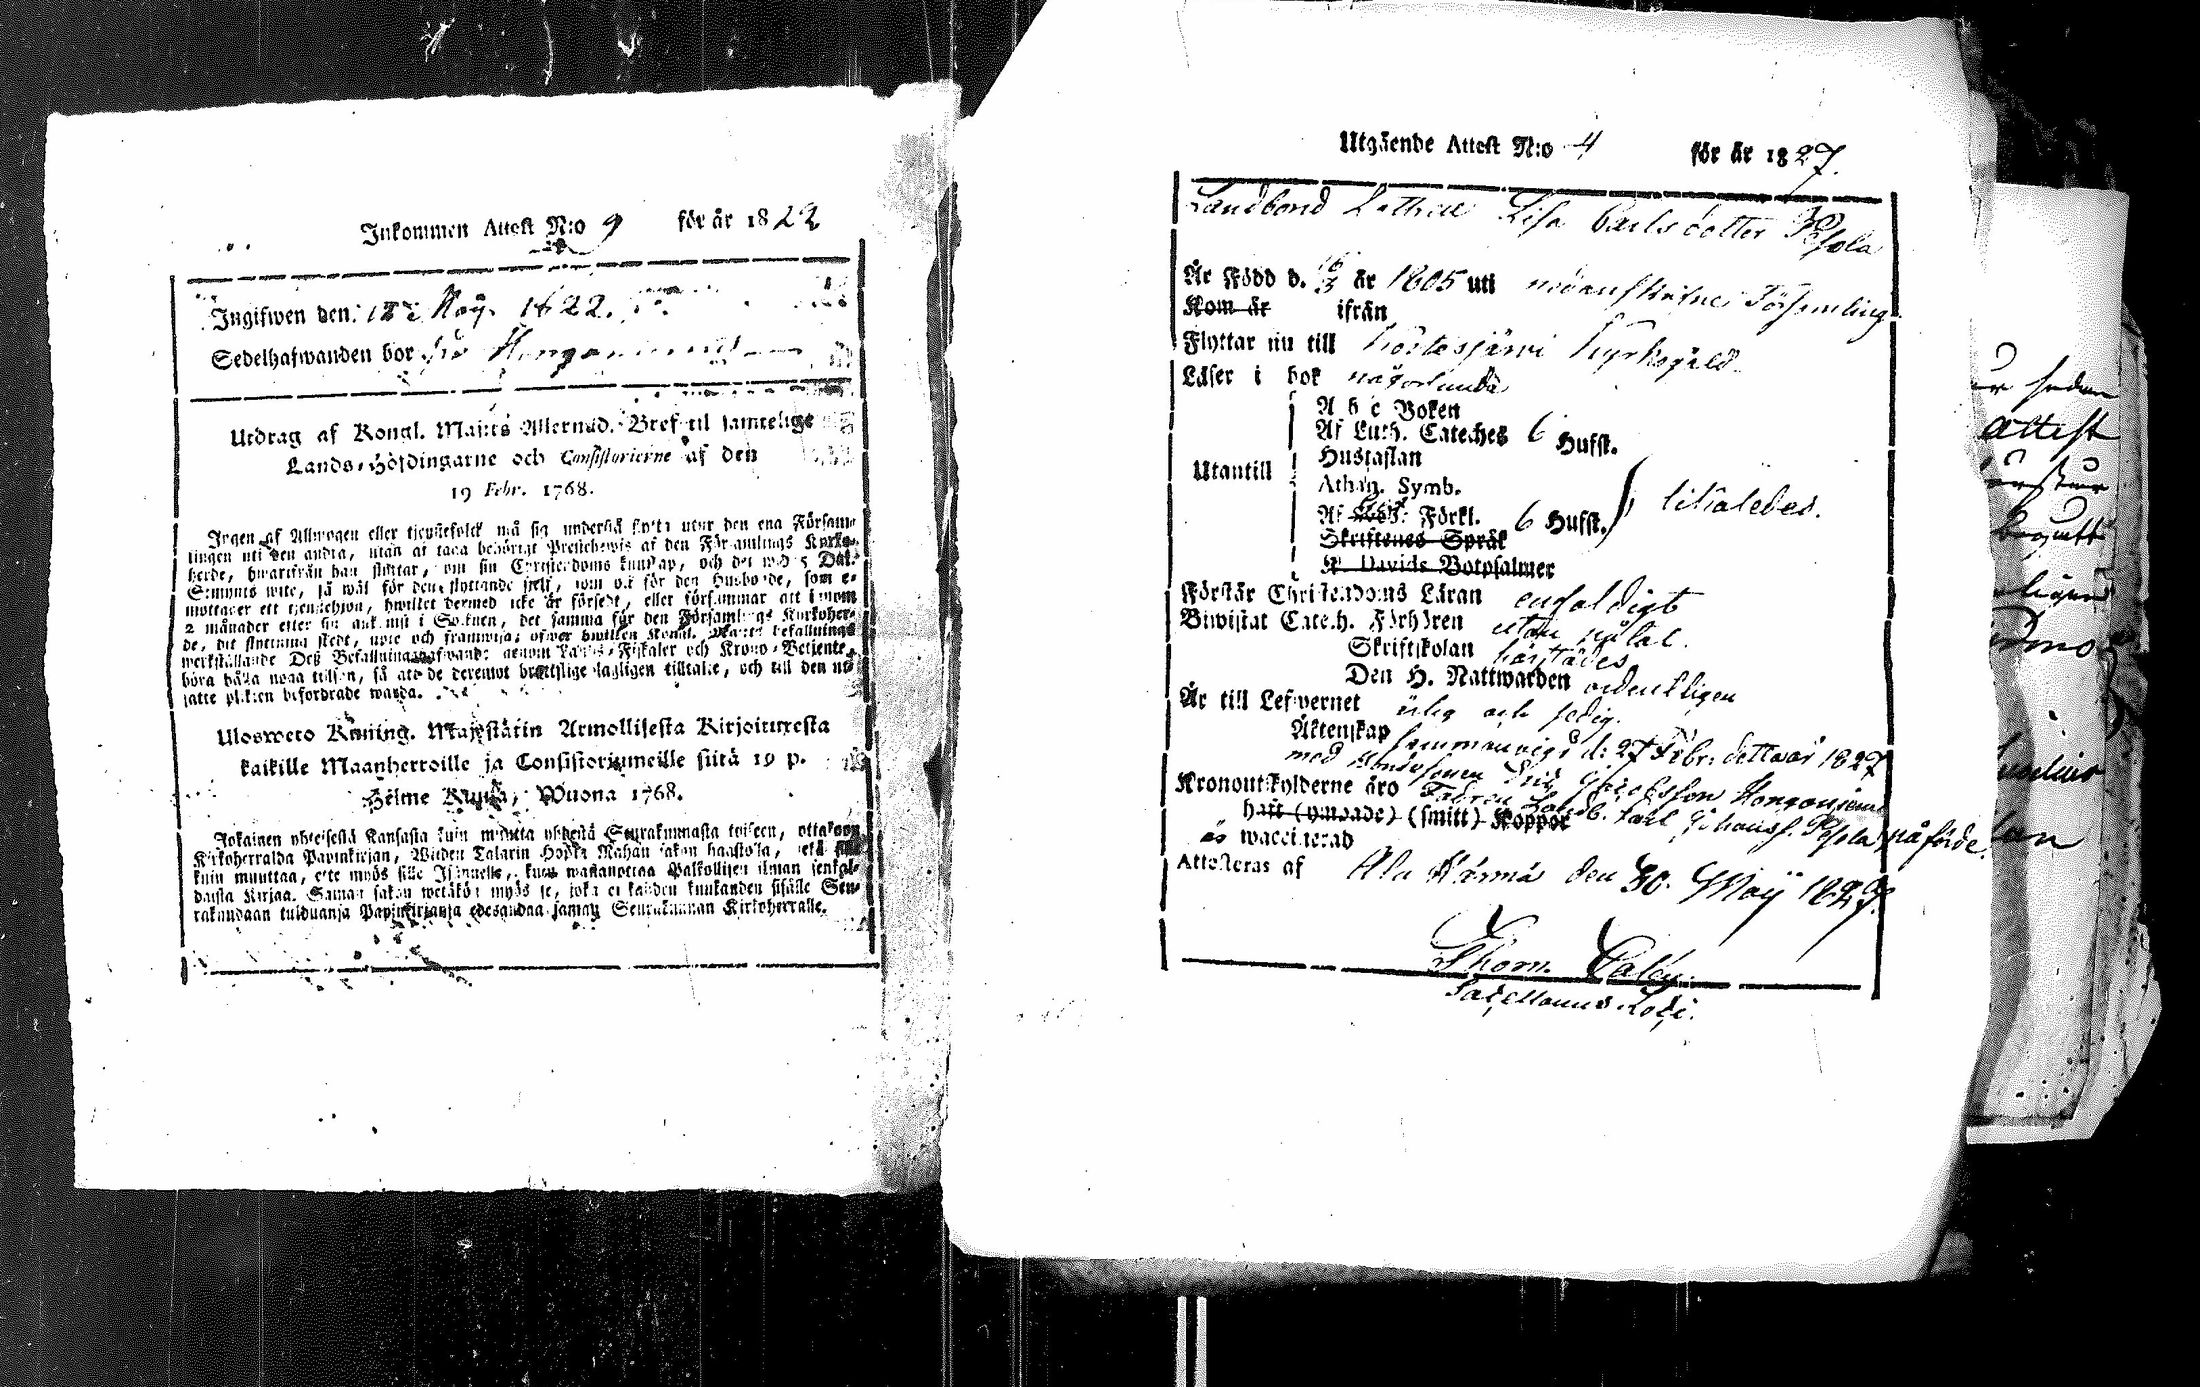 Inkommen Attest N:o 9 för år 1822
Ingifwen den: May. 1822.
Sedelhafwanden bor
Utdrag af Kongl. Maj:ts Allernåd. Bref til samtelige
Lands-Höfdingarne och Consistorierne af den
19 Febr. 1768.
Ingen af Allmogen eller tjenstefolck må sig understå flytta utur den ena Försam-
lingen uti den andra, utan at taga behörigt Prestebewis af den Församlings Kyrko-
herde, hwarifrån han flyttar, om sin Christendoms kunskap, och det wid 5 Dal.
S:mynts wite, så wäl för den flyttande sjelf, som ock för den Husbonde, som e-
mottager ett tjenstehjon, hwilket dermed icke är försedt, eller försummar att innom
2 månader efter sin ankomst i Soknen, det samma för den Församlings Kyrkoher-
de, dit flyttning skedt, upte och framwisa; öfwer hwilken Kongl. Maj:ts befallnings
werkställande Deß Befallningshafwande genom Lands-Fiskaler och Krono-Betjente
böra hålla noga tilsyn, så att de deremot brottslige lagligen tilltalte, och till den ut-
satte plikten befordrade warda.
Ulosweto Kuning. Majestätin Armollisesta Kirjoituxesta
kaikille Maanherroille ja Consistoriumeille siitä 19 p.
Helme Kuusa, Wuona 1768.
Jokainen yhteisestä Kansasta kuin muutta yhdestä Seurakunnasta toiseen, ottakoon
Kirkoherralda Papinkirjan, Wiiden Talarin Hopia Rahan sakon haastolla, sekä sille
kuin muuttaa, ette myös sille Isännelle, kuin wastanottaa Palkollisen ilman senkal-
daista Kirjaa. Saman sakon wetäkön myös se, joka ei kahden kuukauden sisälle Seu-
rakundaan tulduansa Papinkirjansa edesandaa saman Seurakunnan Kirkoherralle.
Utgående Attest N:o 4 för år 1827.
Landbond Lisa Carlsdotter Pesola
År Född d. 16/3 år 1805 uti Församling
Kom år ifrån
Flyttar nu till Kortesjärwi Kyrkogäld
Läser i bok någorlunda
A b c Boken
Af Luth. Cateches 6 Hufst.
Hustaflan
Utantill
Athan. Symb.
Af Förkl. 6 Hufst. likaledes.
Skriftenes Språk
K. Davids Botpsalmer
Förstår Christendoms Läran enfaldigt
Biwistat Catech. Förhören utan påtal.
Skriftskolan härstädes
Den H. Nattwarden ordentligen
År till Lefvernet ärlig och sedig.
Äktenskap sammanvigd d: 27 Febr. dettaår 1827
med Bondesonen Jacobsson Hongonjemi
Kronoutskylderne äro Fadren Landb. Carl Johanss. Pesola påförde.
haft (ympade) (smitt) Koppor
är waccinerad
Attesteras af Ala Härmä den 30. Maÿ 1827.
Thom. Cajan.
Sacellanus Loci.
ur sedan
attest
begutt
lan